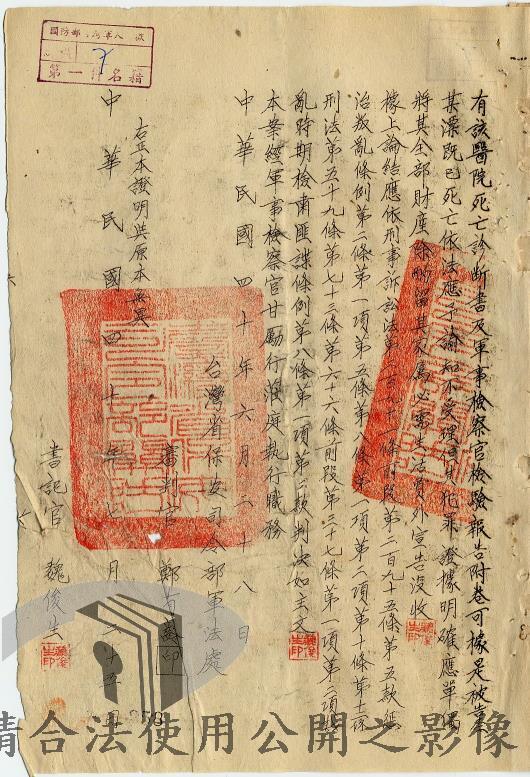 有該醫院死亡診断書及軍事檢察官檢驗報告附卷可據是被告
某溧既已死亡依法應予諭知不受理
犯罪證據明確應單獨
將其全部財產除酌留其家屬必需生活費外宣告沒收
據上論結應依刑事訴訟法第二百九十一條前段第二百九十五條第五款懲
治叛亂條例第二條第一項第五條第八條第一項第二項第十條
刑法第五十九條第七十三條第六十六條前段第三十七條第一項第二項戡
亂時期檢肅匪諜條例第八條第一項第二款判决如主文
本案經軍事檢察官甘勵行蒞庭執行職務
中華民國四十年六月二十八日
台灣省保安司令部軍法處
審判官 鄭
右正本證明與原本無異
中華民國四十年七月二十五日
書記官 魏俊生
請合法使用公開之影像